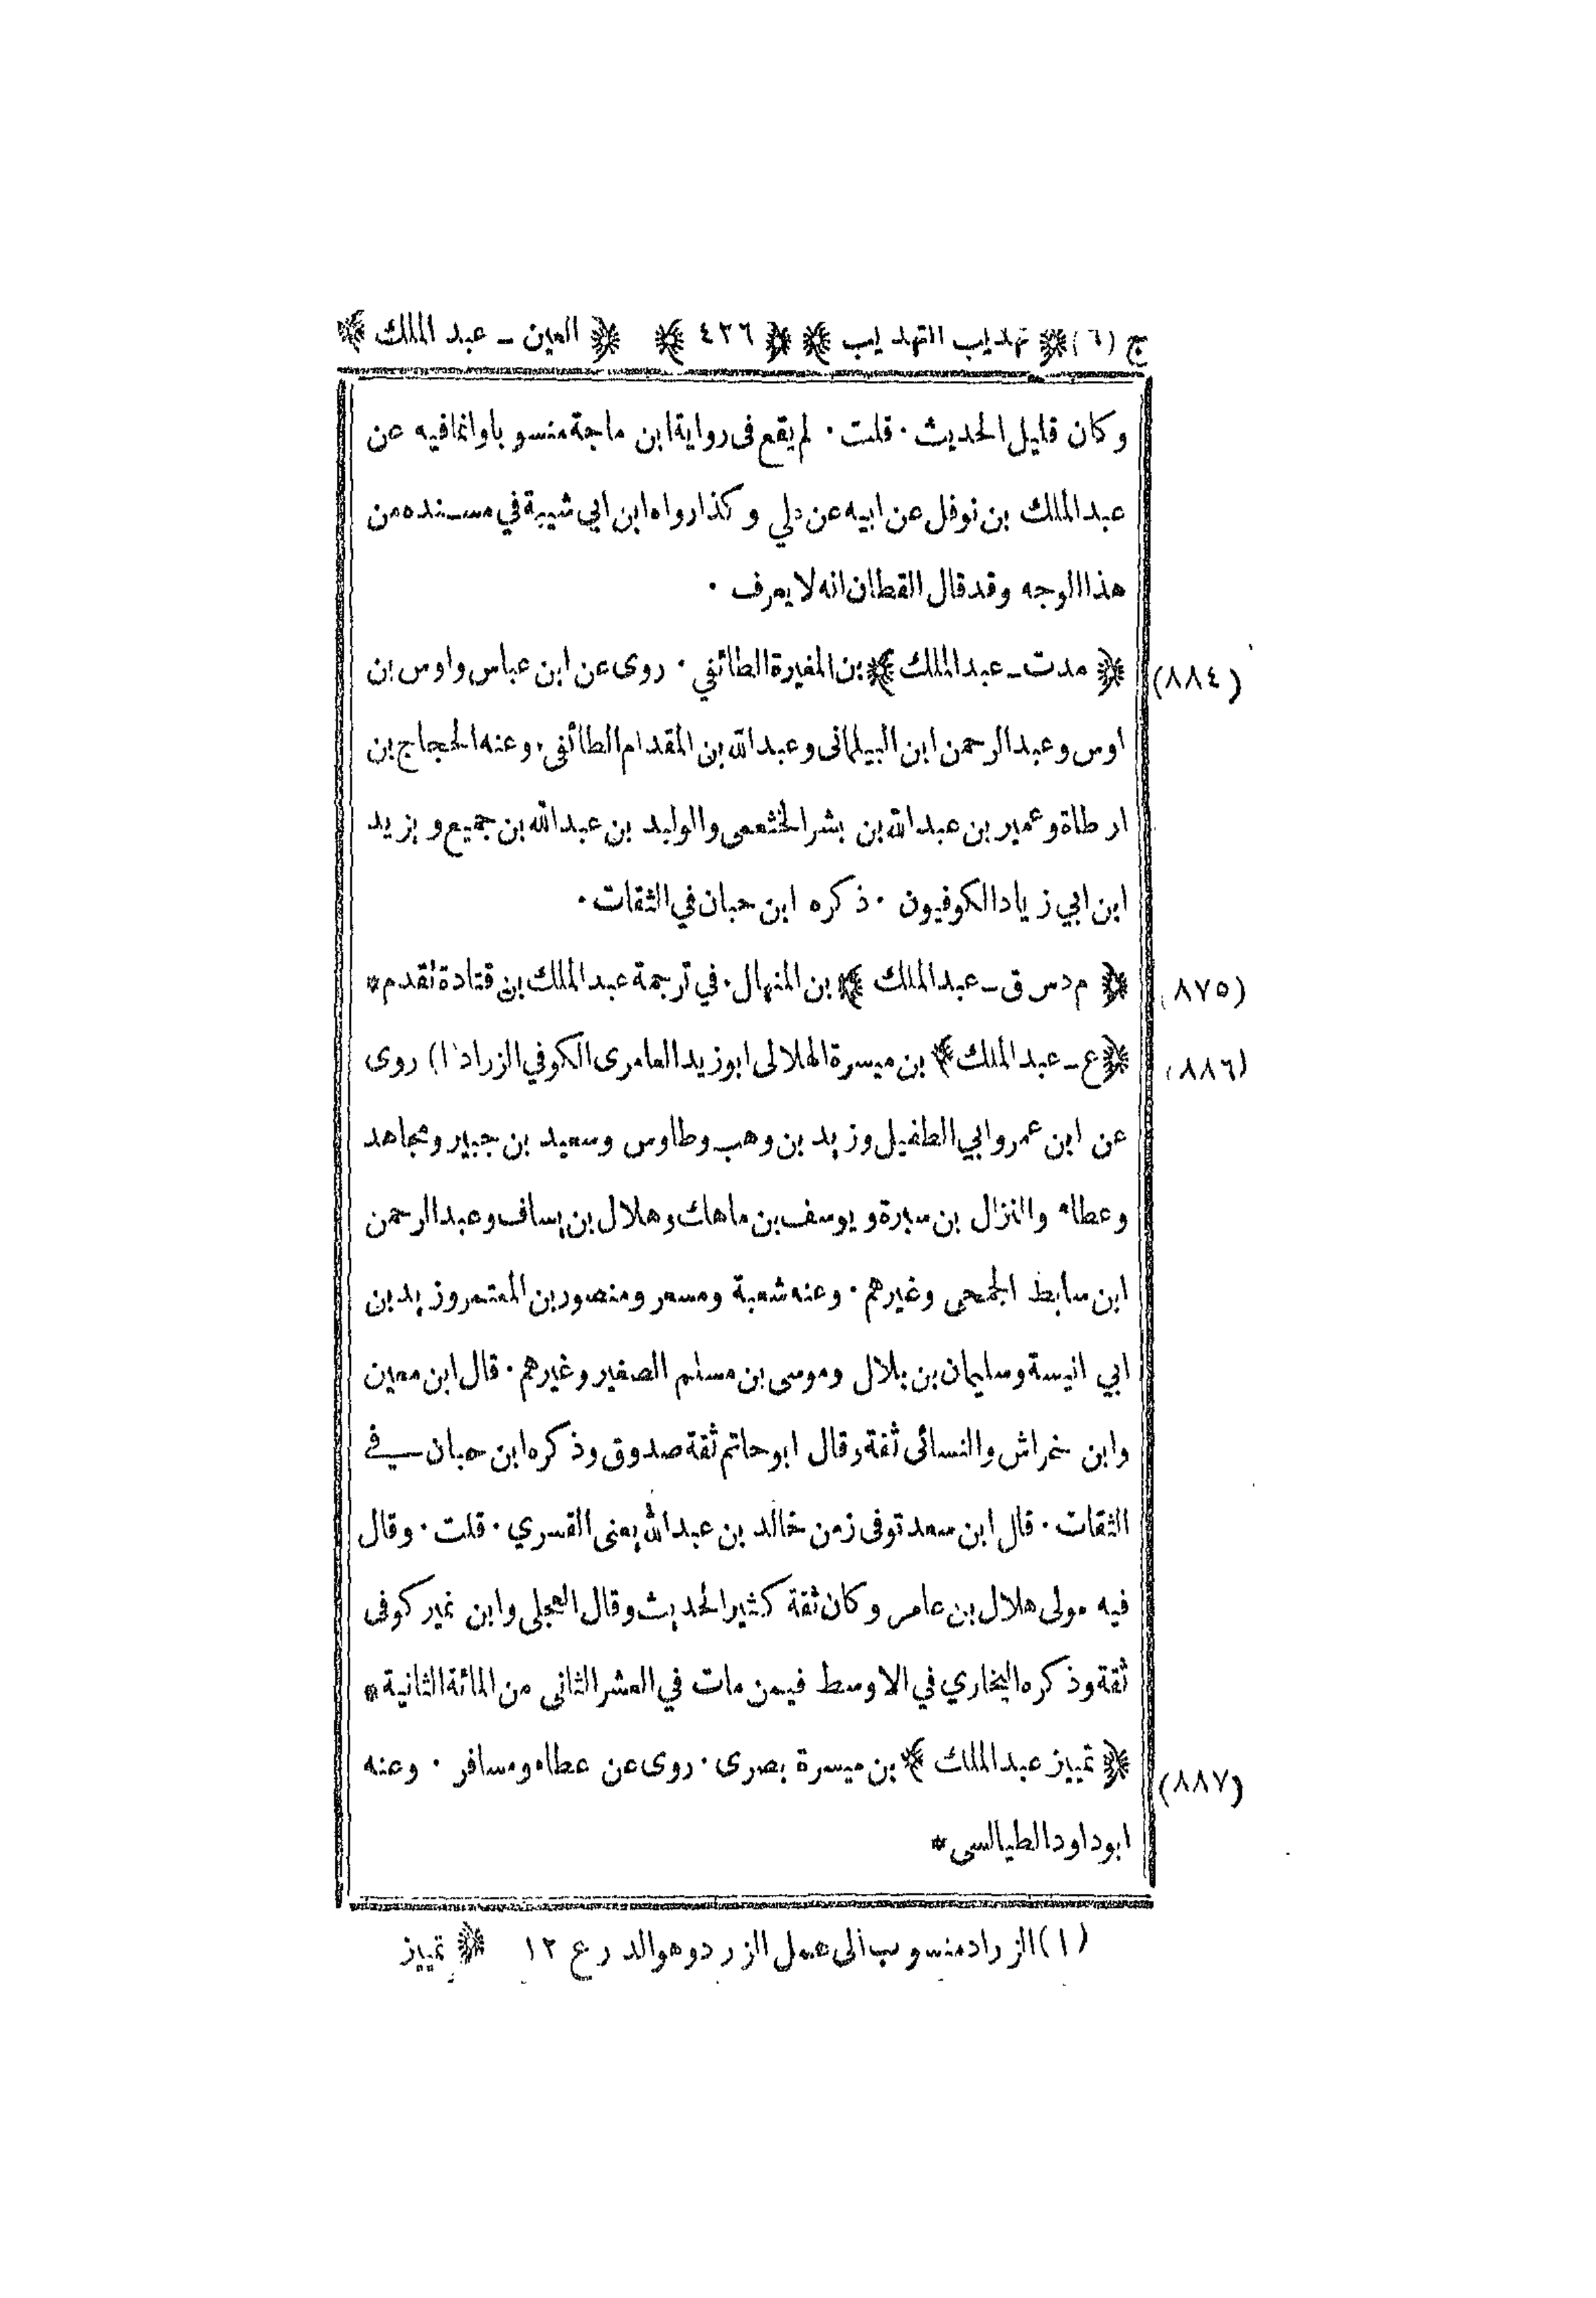 ج (٦) ﴿ تهذيب التهذيب ﴾ ﴿ ٤٢٦ ﴾ ﴿ العين – عبد الملك ﴾
وكان قليل الحديث · قلت · لم يقع فى رواية ابن ماجة منسوبا وانما فيه عن
عبد الملك بن نوفل عن ابيه عن علي وكذا رواه ابن ابي شيبة في مسنده من
هذا الوجه وقد قال القطان انه لا يعرف ·
(٨٨٤) ﴿ مدت – عبد الملك ﴾ بن المغيرة الطائفي · روى عن ابن عباس واوس بن
اوس وعبد الرحمن ابن البيلمانى وعبد الله بن المقدام الطائفى · وعنه الحجاج بن
ارطاة وعمير بن عبد الله بن بشر الخثعمى والوليد بن عبد الله بن جميع ويزيد
ابن ابي زياد الكوفيون · ذكره ابن حبان في الثقات ·
(٨٧٥) ﴿ م د س ق – عبد الملك ﴾ بن المنهال · في ترجمة عبد الملك بن قتادة تقدم *
(٨٨٦) ﴿ ع – عبد الملك ﴾ بن ميسرة الهلالى ابو زيد العامرى الكوفي الزراد (١) روى
عن ابن عمر وابي الطفيل وزيد بن وهب وطاوس وسعيد بن جبير ومجاهد
وعطاء والنزال بن سبرة ويوسف بن ماهك وهلال بن يساف وعبد الرحمن
ابن سابط الجمحى وغيرهم · وعنه شعبة ومسعر ومنصور بن المعتمر وزيد بن
ابي انيسة وسليمان بن بلال وموسى بن مسلم الصغير وغيرهم · قال ابن معين
وابن خراش والنسائى ثقة وقال ابو حاتم ثقة صدوق وذكره ابن حبان في
الثقات · قال ابن سعد توفى زمن خالد بن عبد الله يعنى القسري · قلت · وقال
فيه مولى هلال بن عامر وكان ثقة كثير الحديث وقال العجلى وابن نمير كوفى
ثقة وذكره البخاري في الاوسط فيمن مات في العشر الثانى من المائة الثانية *
(٨٨٧) ﴿ تمييز عبد الملك ﴾ بن ميسرة بصرى · روى عن عطاء ومسافر · وعنه
ابو داود الطيالسى *
(١) الزراد منسوب الى عمل الزرد وهو الدرع ١٢ ﴿ تمييز